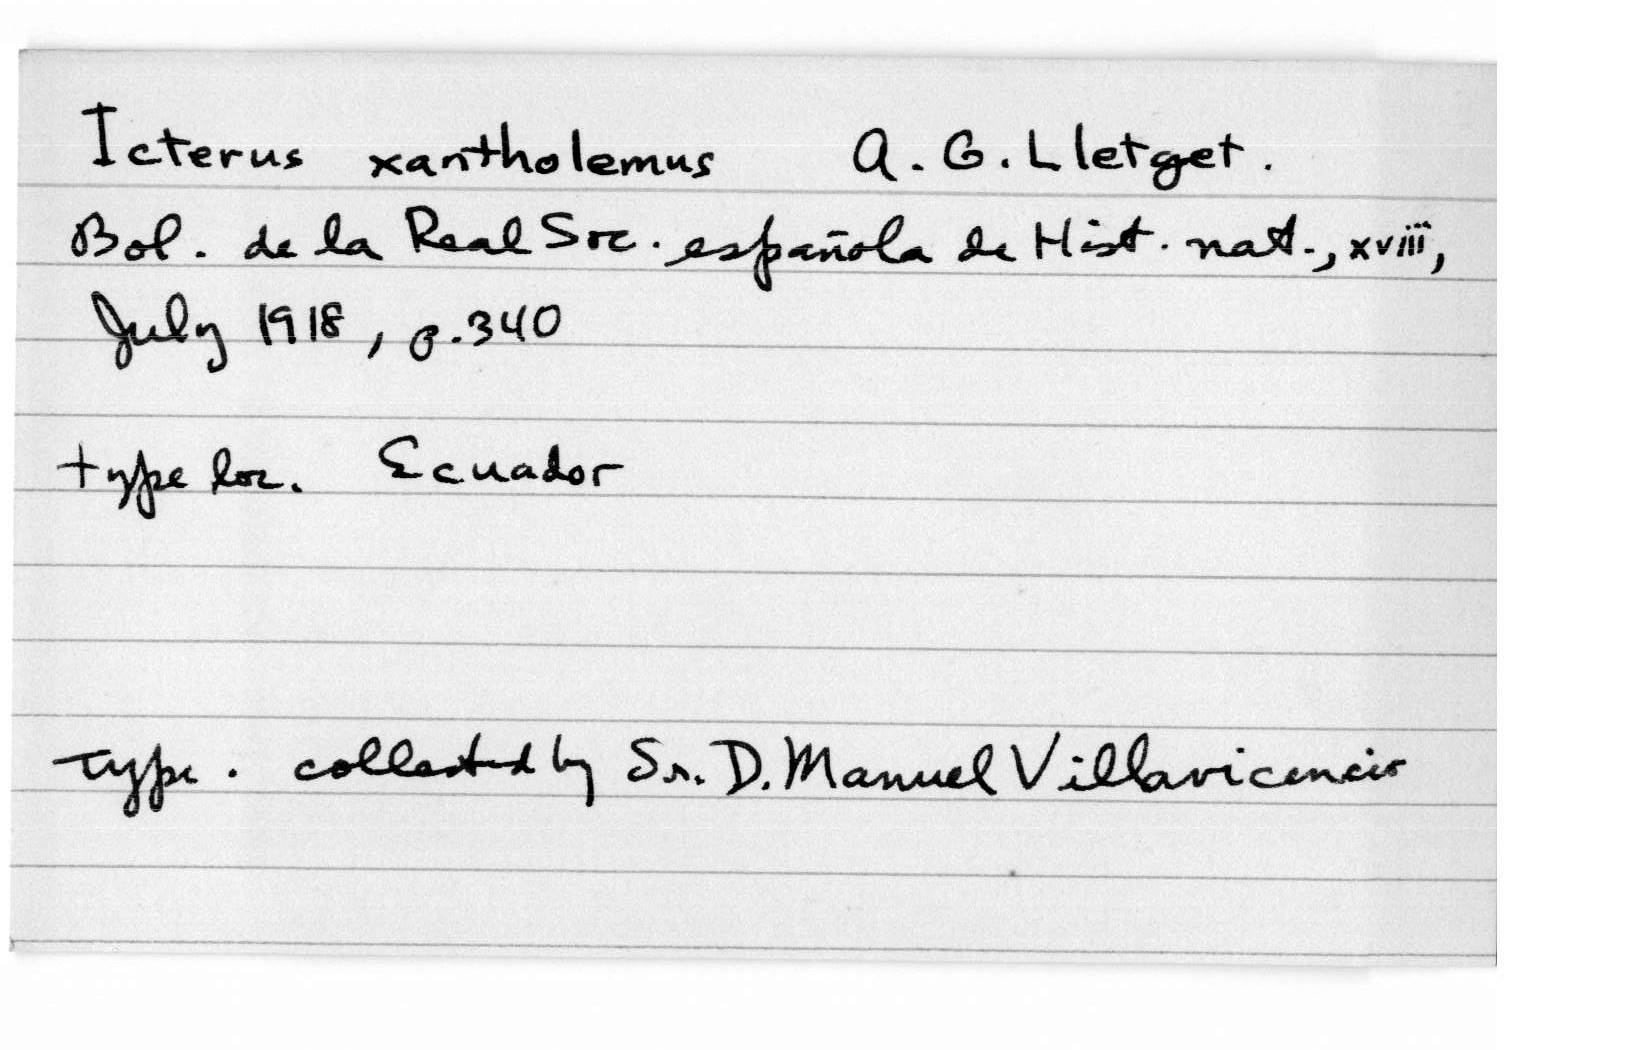 Icterus xantholemus A. G. Lletget.
Bol. de la Real Soc. española de Hist. nat., xviii,
July 1918, p. 340
type loc. Ecuador
Type. collected by Sr. D. Manuel Villavicencio